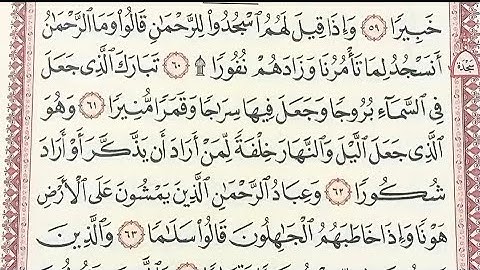 خَبِيرًا ٥٩ وَإِذَا قِيلَ لَهُمُ ٱسْجُدُوا۟ لِلرَّحْمَـٰنِ قَالُوا۟ وَمَا ٱلرَّحْمَـٰنُ
أَنَسْجُدُ لِمَا تَأْمُرُنَا وَزَادَهُمْ نُفُورًا ۩ ٦٠ تَبَارَكَ ٱلَّذِى جَعَلَ
سجدة
فِى ٱلسَّمَآءِ بُرُوجًا وَجَعَلَ فِيهَا سِرَٰجًا وَقَمَرًا مُّنِيرًا ٦١ وَهُوَ
ٱلَّذِى جَعَلَ ٱلَّيْلَ وَٱلنَّهَارَ خِلْفَةً لِّمَنْ أَرَادَ أَن يَذَّكَّرَ أَوْ أَرَادَ
شُكُورًا ٦٢ وَعِبَادُ ٱلرَّحْمَـٰنِ ٱلَّذِينَ يَمْشُونَ عَلَى ٱلْأَرْضِ
هَوْنًا وَإِذَا خَاطَبَهُمُ ٱلْجَـٰهِلُونَ قَالُوا۟ سَلَـٰمًا ٦٣ وَٱلَّذِينَ